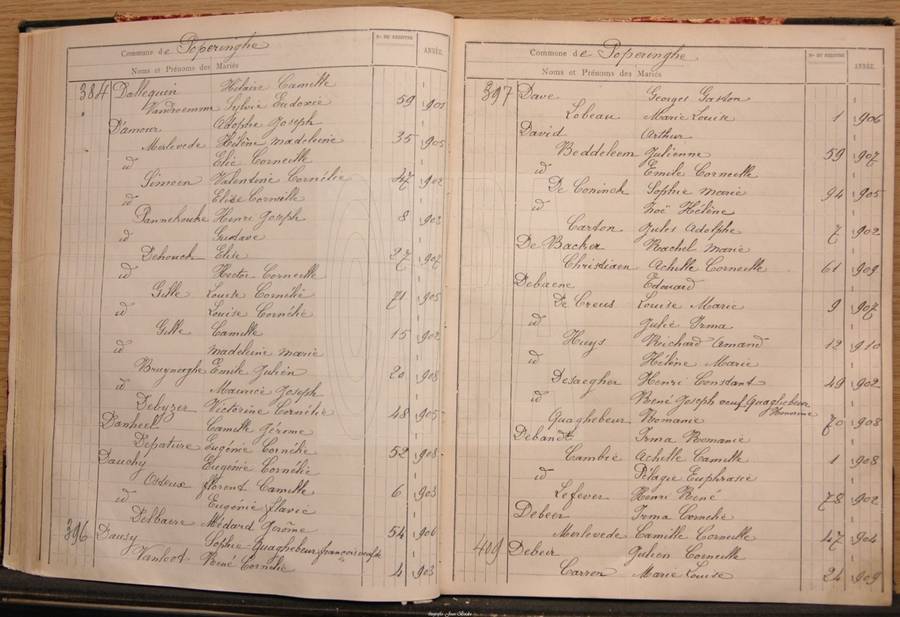 Commune de Poperinghe
Noms et Prénoms des Mariés
Nº DU REGISTRE
ANNÉE.
384 Dallequin Hilaire Camille
Vandromme Sylvie Eudoxie 59 903
D'amour Adolphe Joseph
Merlevede Hélène Madeleine 35 905
id Elie Corneille
Simoen Valentine Cornélie 47 902
id Elise Corneille
Pannekoucke Henri Joseph 8 903
id Gustave
Dehouck Elise 27 907
id Hector Corneille
Gille Louise Cornélie 71 905
id Louise Cornélie
Gille Camille 15 902
id Madeleine Marie
Bruyneeghe Emile Julien 20 908
id Maurice Joseph
Debyzer Victorine Cornélie 48 905
Danheel Camille Jérome
Depature Eugénie Cornélie 52 908
Dauchy Eugénie Cornélie
Osteux Florent Camille 6 903
id Eugénie Flavie
Delbaere Médard Jérôme 54 906
396 Dausy Sophie Quaghebeur françois
Vanloot René Cornélie 4 903
Commune de Poperinghe
Noms et Prénoms des Mariés
Nº DU REGISTRE
ANNÉE.
397 Dave Georges Gaston
Lobeau Marie Louise 1 906
David Arthur
Beddeleem Julienne 59 907
id Emile Corneille
De Coninck Sophie Marie 94 905
id Zoë Hélène
Carton Jules Adolphe 7 902
De Backer Rachel Marie
Christiaen Achille Corneille 61 909
Debaene Edouard
De Creus Louise Marie 9 907
id Julie Irma
Huys Richard Amand 12 910
id Hélène Marie
Desaegher Henri Constant 49 902
id René Joseph veuf Quaghebeur
Quaghebeur Romanie 70 908
Debandt Irma Romanie
Cambié Achille Camille 1 908
id Pélagie Euphrasie
Lefever Henri René 78 902
Debeer Irma Cornélie
Merlevede Camille Corneille 47 904
409 Debeir Julien Corneille
Carron Marie Louise 24 909